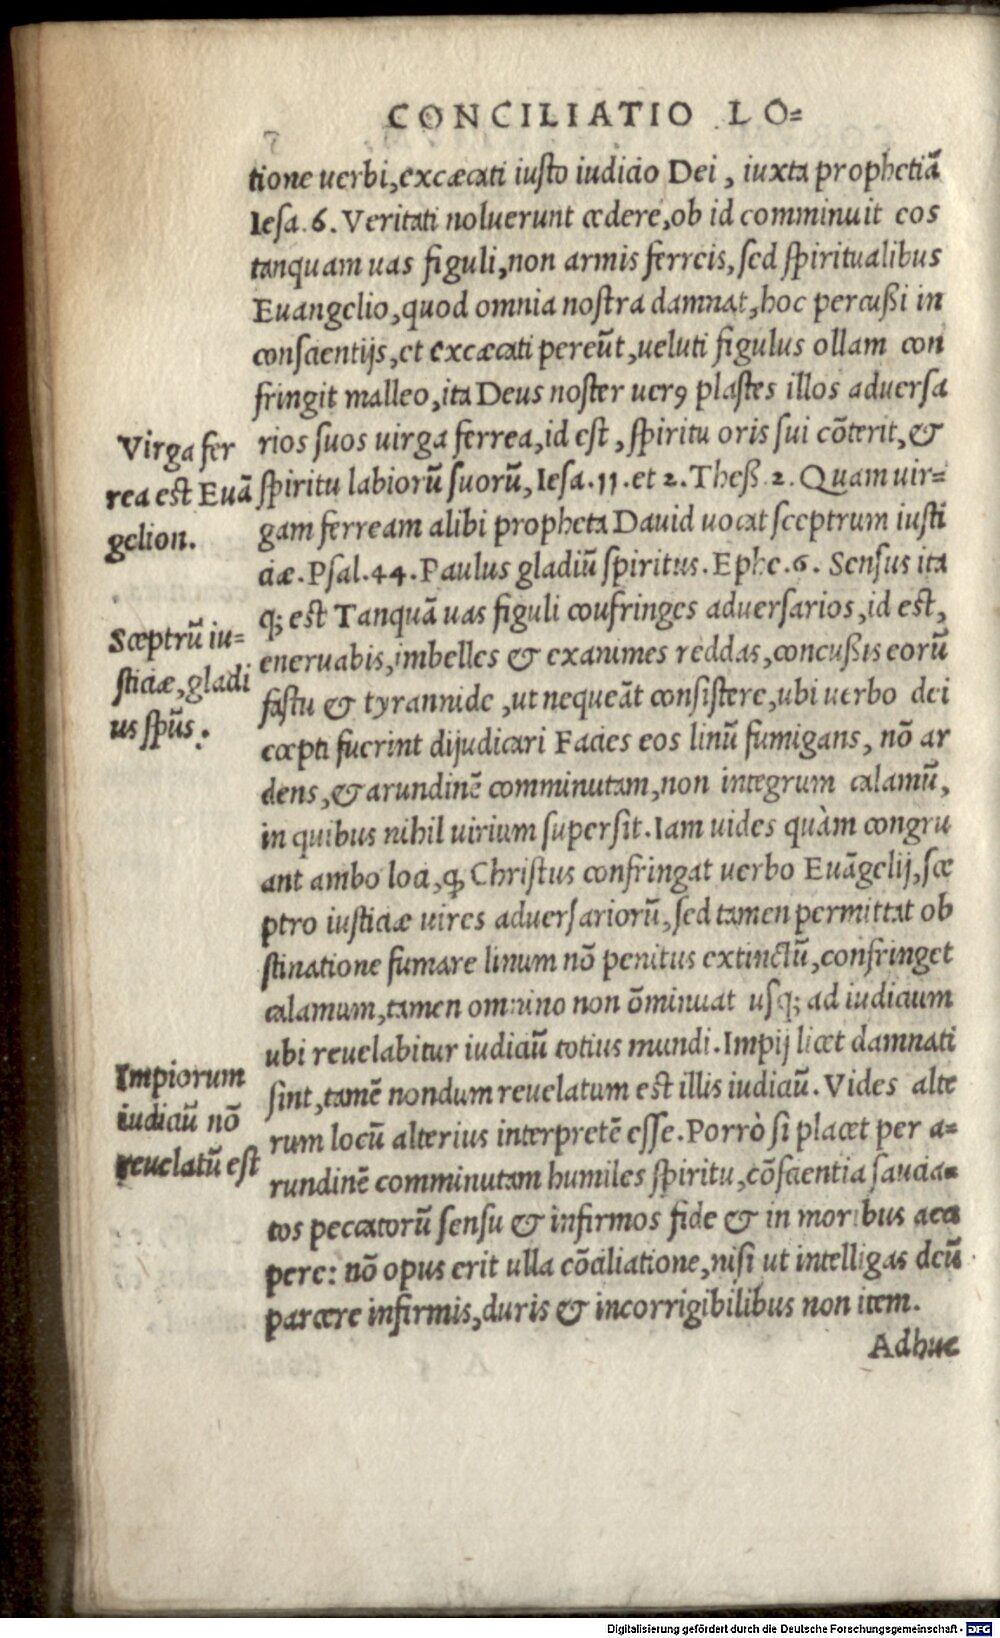 CONCILIATIO LO=
tione uerbi, excæcati iusto iudicio Dei, iuxta prophetiā
Iesa. 6. Veritati noluerunt cedere, ob id comminuit eos
tanquam uas figuli, non armis ferreis, sed spiritualibus
Euangelio, quod omnia nostra damnat, hoc percußi in
conscientijs, et excæcati pereūt, ueluti figulus ollam con
fringit malleo, ita Deus noster uerꝰ plastes illos aduersa
rios suos uirga ferrea, id est, spiritu oris sui cōterit, &
spiritu labiorū suorū, Iesa. 11. et 2. Theß. 2. Quam uir=
gam ferream alibi propheta Dauid uocat sceptrum iusti
ciæ. Psal. 44. Paulus gladiū spiritus. Ephe. 6. Sensus ita
q; est Tanquā uas figuli coufringes aduersarios, id est,
eneruabis, imbelles & exanimes reddas, concußis eorū
fastu & tyrannide, ut nequeāt consistere, ubi uerbo dei
cœpti fuerint dijudicari Facies eos linū fumigans, nō ar
dens, & arundinē comminutam, non integrum calamū,
in quibus nihil uirium supersit. Iam uides quàm congru
ant ambo loca, ꝙ Christus confringat uerbo Euāgelij, sce
ptro iusticiæ uires aduersariorū, sed tamen permittat ob
stinatione fumare linum nō penitus extinctū, confringet
calamum, tamen omnino non ōminuat usq; ad iudicium
ubi reuelabitur iudiciū totius mundi. Impij licet damnati
sint, tamē nondum reuelatum est illis iudiciū. Vides alte
rum locū alterius interpretē esse. Porrò si placet per a=
rundinē comminutam humiles spiritu, cōscientia saucia=
tos peccatorū sensu & infirmos fide & in moribus acci
pere: nō opus erit ulla cōciliatione, nisi ut intelligas deū
parcere infirmis, duris & incorrigibilibus non item.
Adhuc
Virga fer
rea est Euā
gelion.
Sceptrū iu=
sticiæ, gladi
us sp̄us.
Impiorum
iudiciū nō
reuelatū est
Digitalisierung gefördert durch die Deutsche Forschungsgemeinschaft - DFG